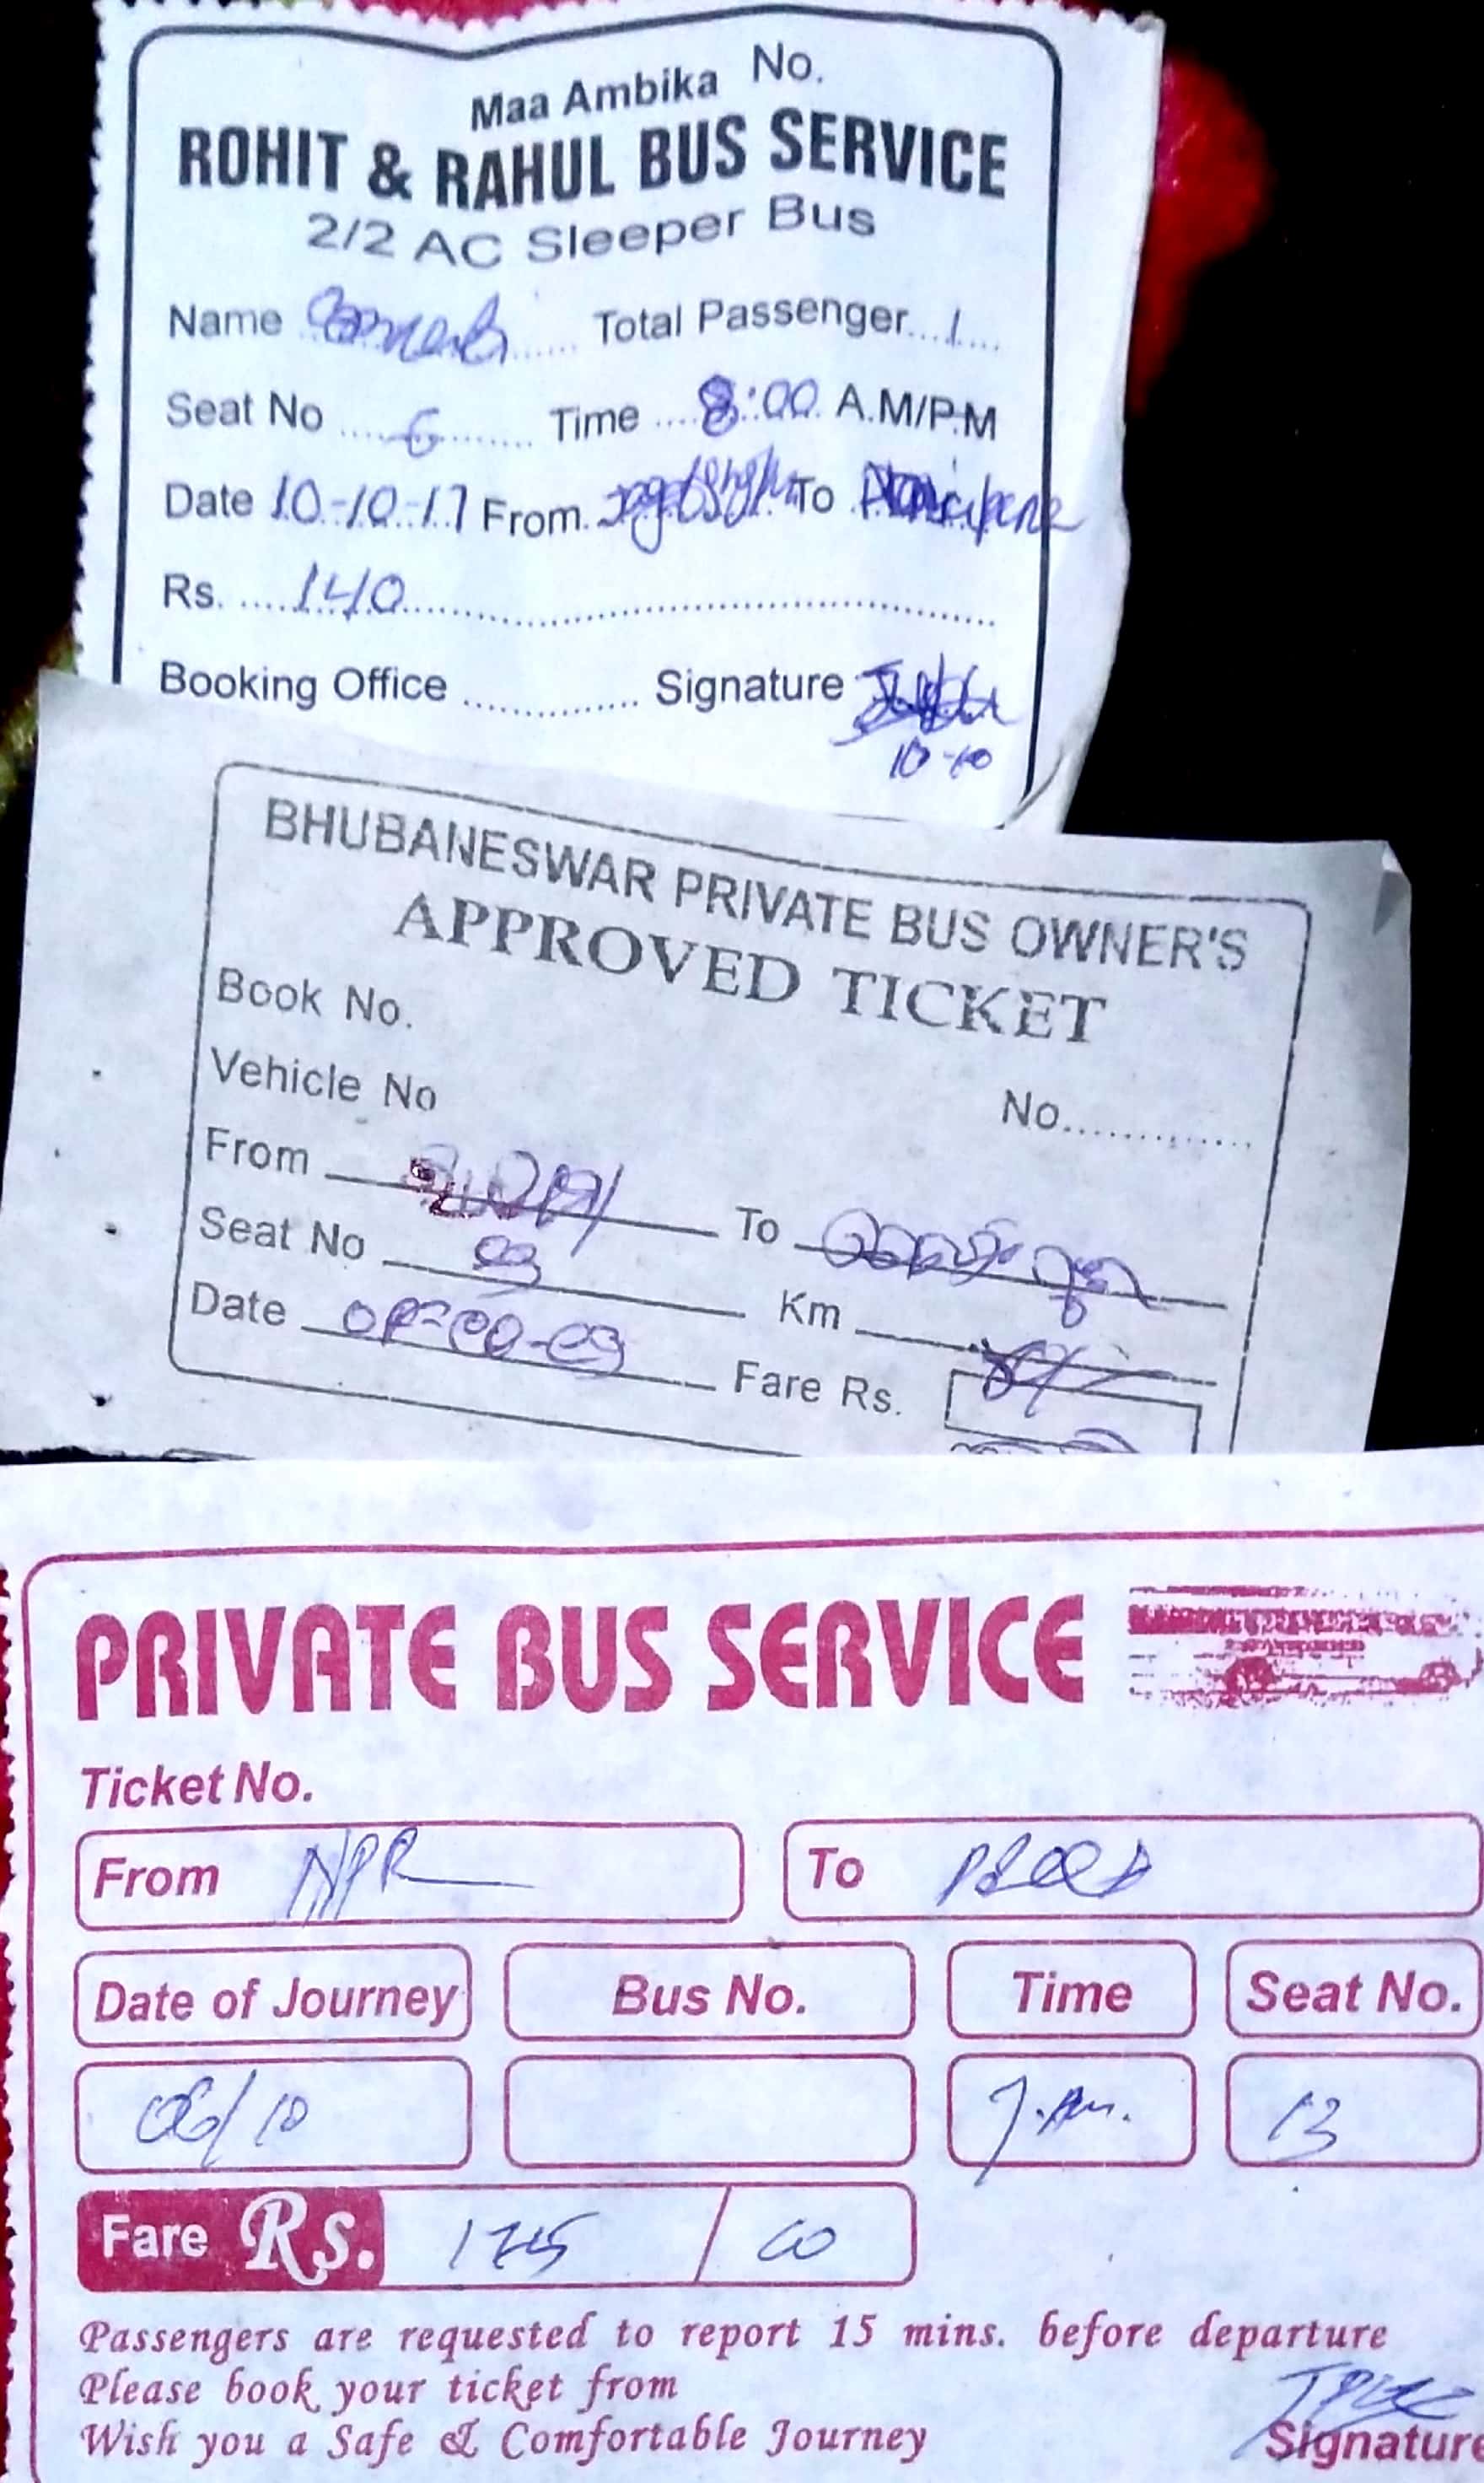 Maa Ambika No.
ROHIT & RAHUL BUS SERVICE
2/2 AC Sleeper Bus
Name Total Passenger 1
Seat No 6 Time 8:00 A.M/P.M
Date 10-10-17 From To
Rs. 140
Booking Office Signature
10-10
BHUBANESWAR PRIVATE BUS OWNER'S
APPROVED TICKET
Book No.
Vehicle No No.
From To
Seat No Km
Date Fare Rs.
PRIVATE BUS SERVICE
Ticket No.
From NPR To
Date of Journey Bus No. Time Seat No.
06/10 7.Am. 13
Fare Rs. 175 / 00
Passengers are requested to report 15 mins. before departure
Please book your ticket from
Wish you a Safe & Comfortable Journey Signature